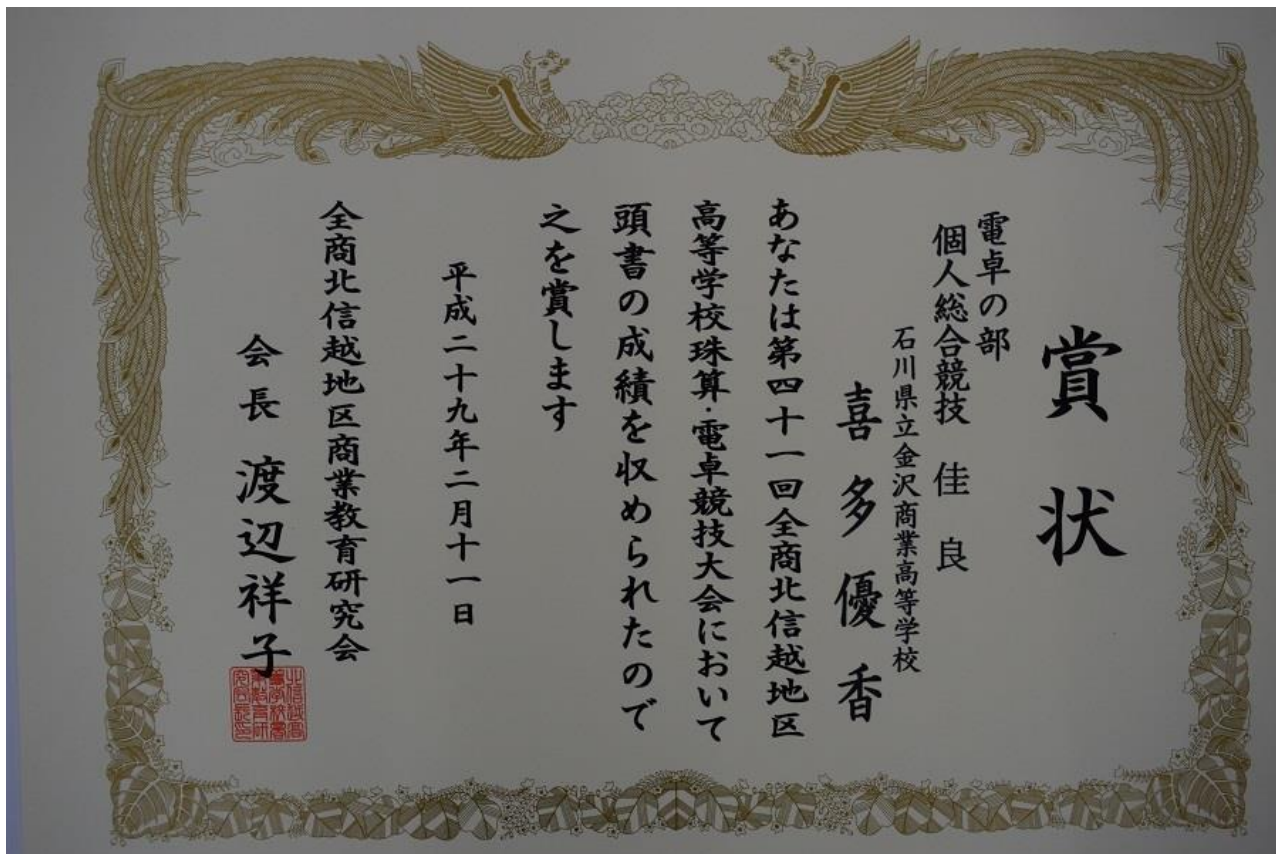 賞状
電卓の部
個人総合競技 佳良
石川県立金沢商業高等学校
喜多優香
あなたは第四十一回全商北信越地区
高等学校珠算・電卓競技大会において
頭書の成績を収められたので
之を賞します
平成二十九年二月十一日
全商北信越地区商業教育研究会
会長 渡辺祥子